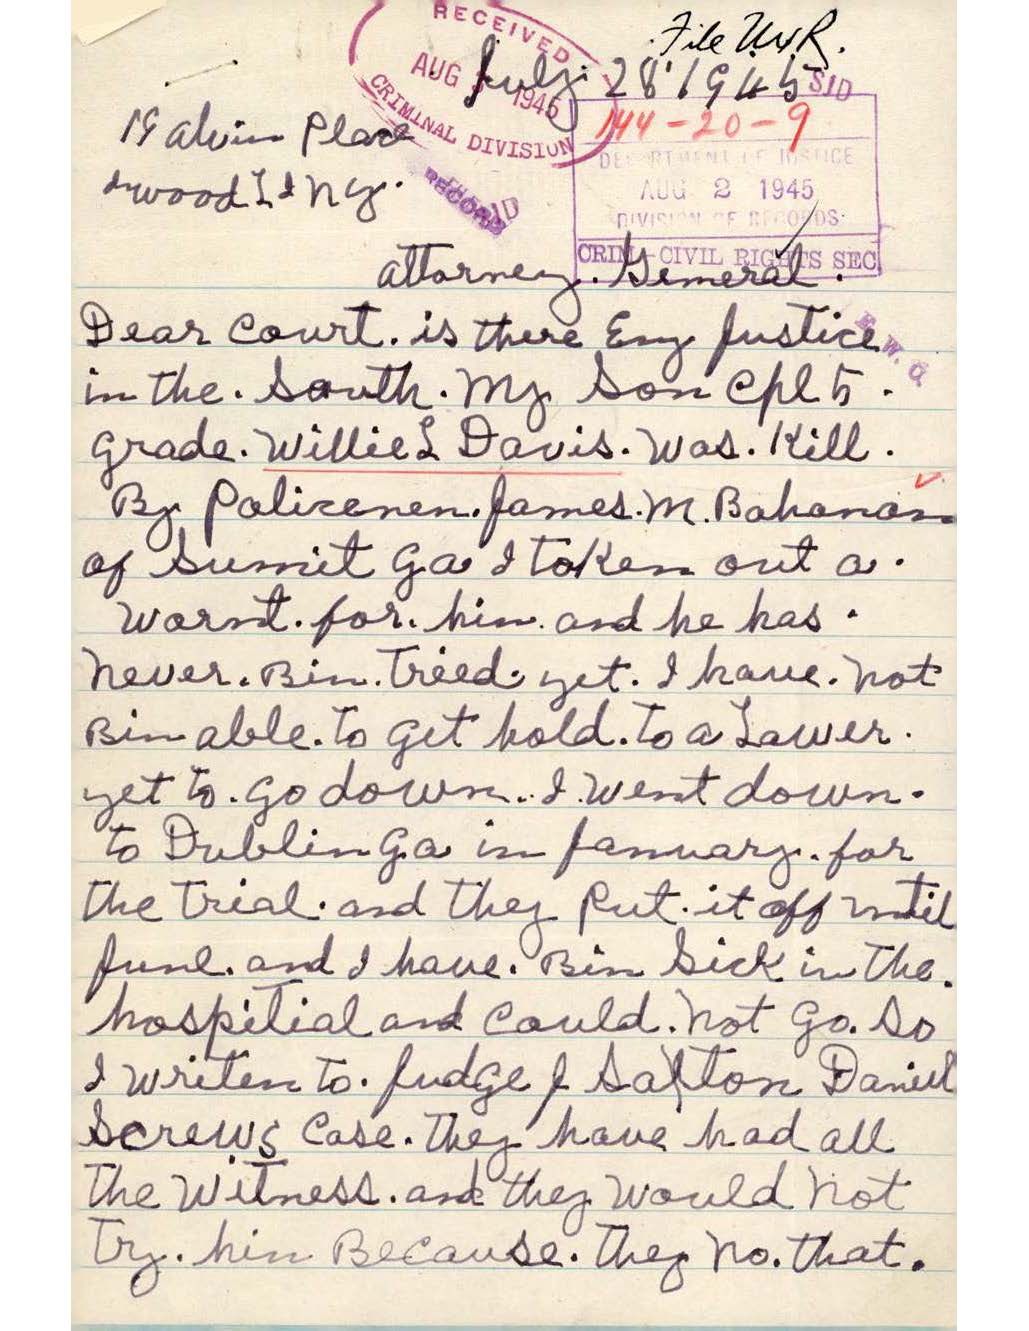 File WR.
RECEIVED
AUG 1945
CRIMINAL DIVISION
July 28 1945
SID
144-20-9
DEPARTMENT OF JUSTICE
AUG 2 1945
DIVISION OF RECORDS
CRIM-CIVIL RIGHTS SEC
RECORD
19 alvin Place
NY.
attorney. General.
Dear Court. is there Eny Justice
in the. South. My Son Cpl 5.
grade. Willie L Davis. Was. Kill.
By Policenen. James. M. Bohanan
of Sumit Ga I taken out a.
Warnt. for. him. and he has.
Never. Bin. Treed. yet. I have. not
Bin able. to get hold. to a Lawer.
yet to. go down.. I. Went down.
to Dublin Ga in January. for
the Trial. and they Put. it off until
June. and I have. Bin Sick in the.
hospitial and Could. Not Go. So
I Writen to. Judge J Daniel
Screws Case. They have had all
the Witness. and they Would Not
Try. him Because. They No. that.